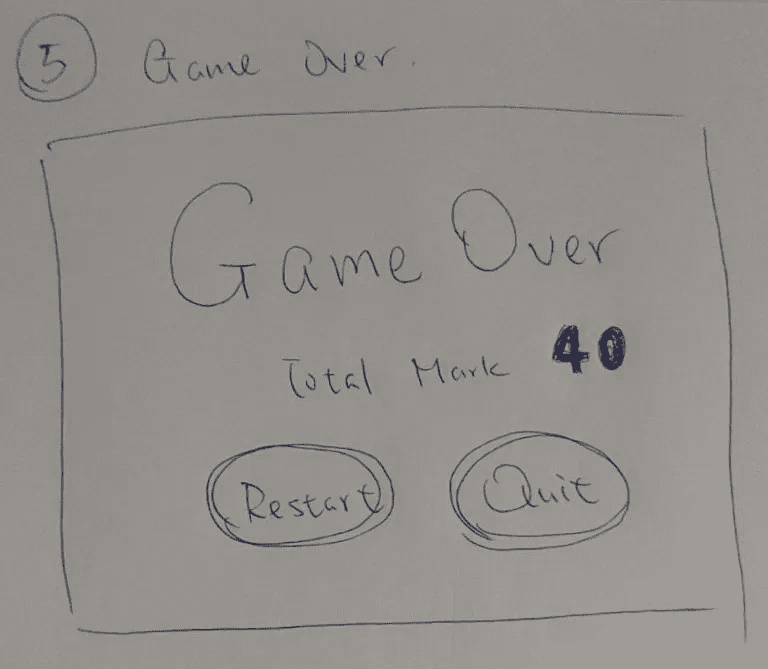 5 Game Over.
Game Over
Total Mark 40
Restart Quit